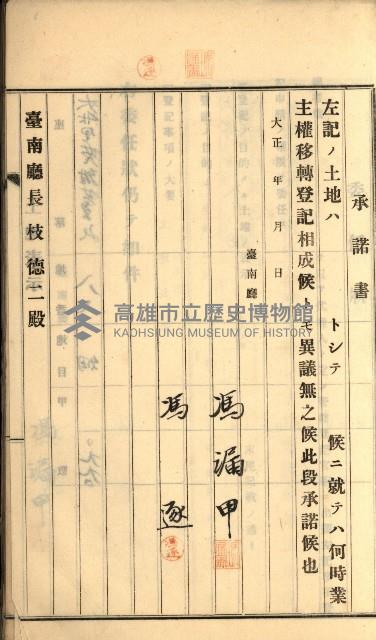 承諾書
左記ノ土地ハ トシテ 候ニ就テハ何時業
主權移轉登記相成候トモ異議無之候此段承諾候也
大正 年 月 日
臺南廳
馮漏甲
馮逐
臺南廳長枝德二殿
高雄市立歷史博物館
KAOHSIUNG MUSEUM OF HISTORY